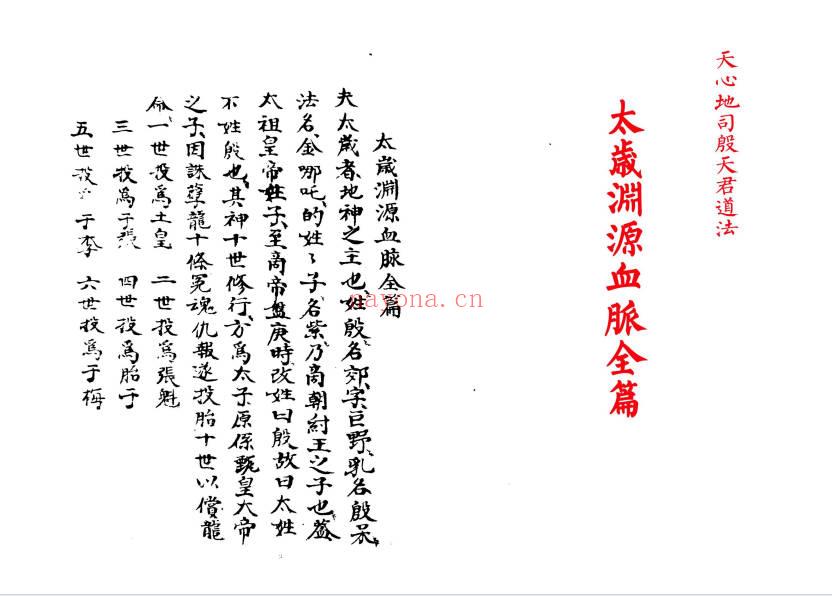 天心地司殷天君道法
太歲淵源血脈全篇
太歲淵源血脉全篇
夫太歲者地神之主也姓殷名郊字巨野乳名殷呆
法名金哪吒的姓々子名紫乃商朝紂王之子也盖
太祖皇帝姓子至商帝盤庚時改姓曰殷故曰太姓
不姓殷也其神十世修行方為太子原係甄皇大帝
之子因誅孽龍十條冤魂仇報遂投胎十世以償龍
命一世投為土皇 二世投為張魁
三世投為于張 四世投為胎于
五世投 于李 六世投為于梅
nayona.cn